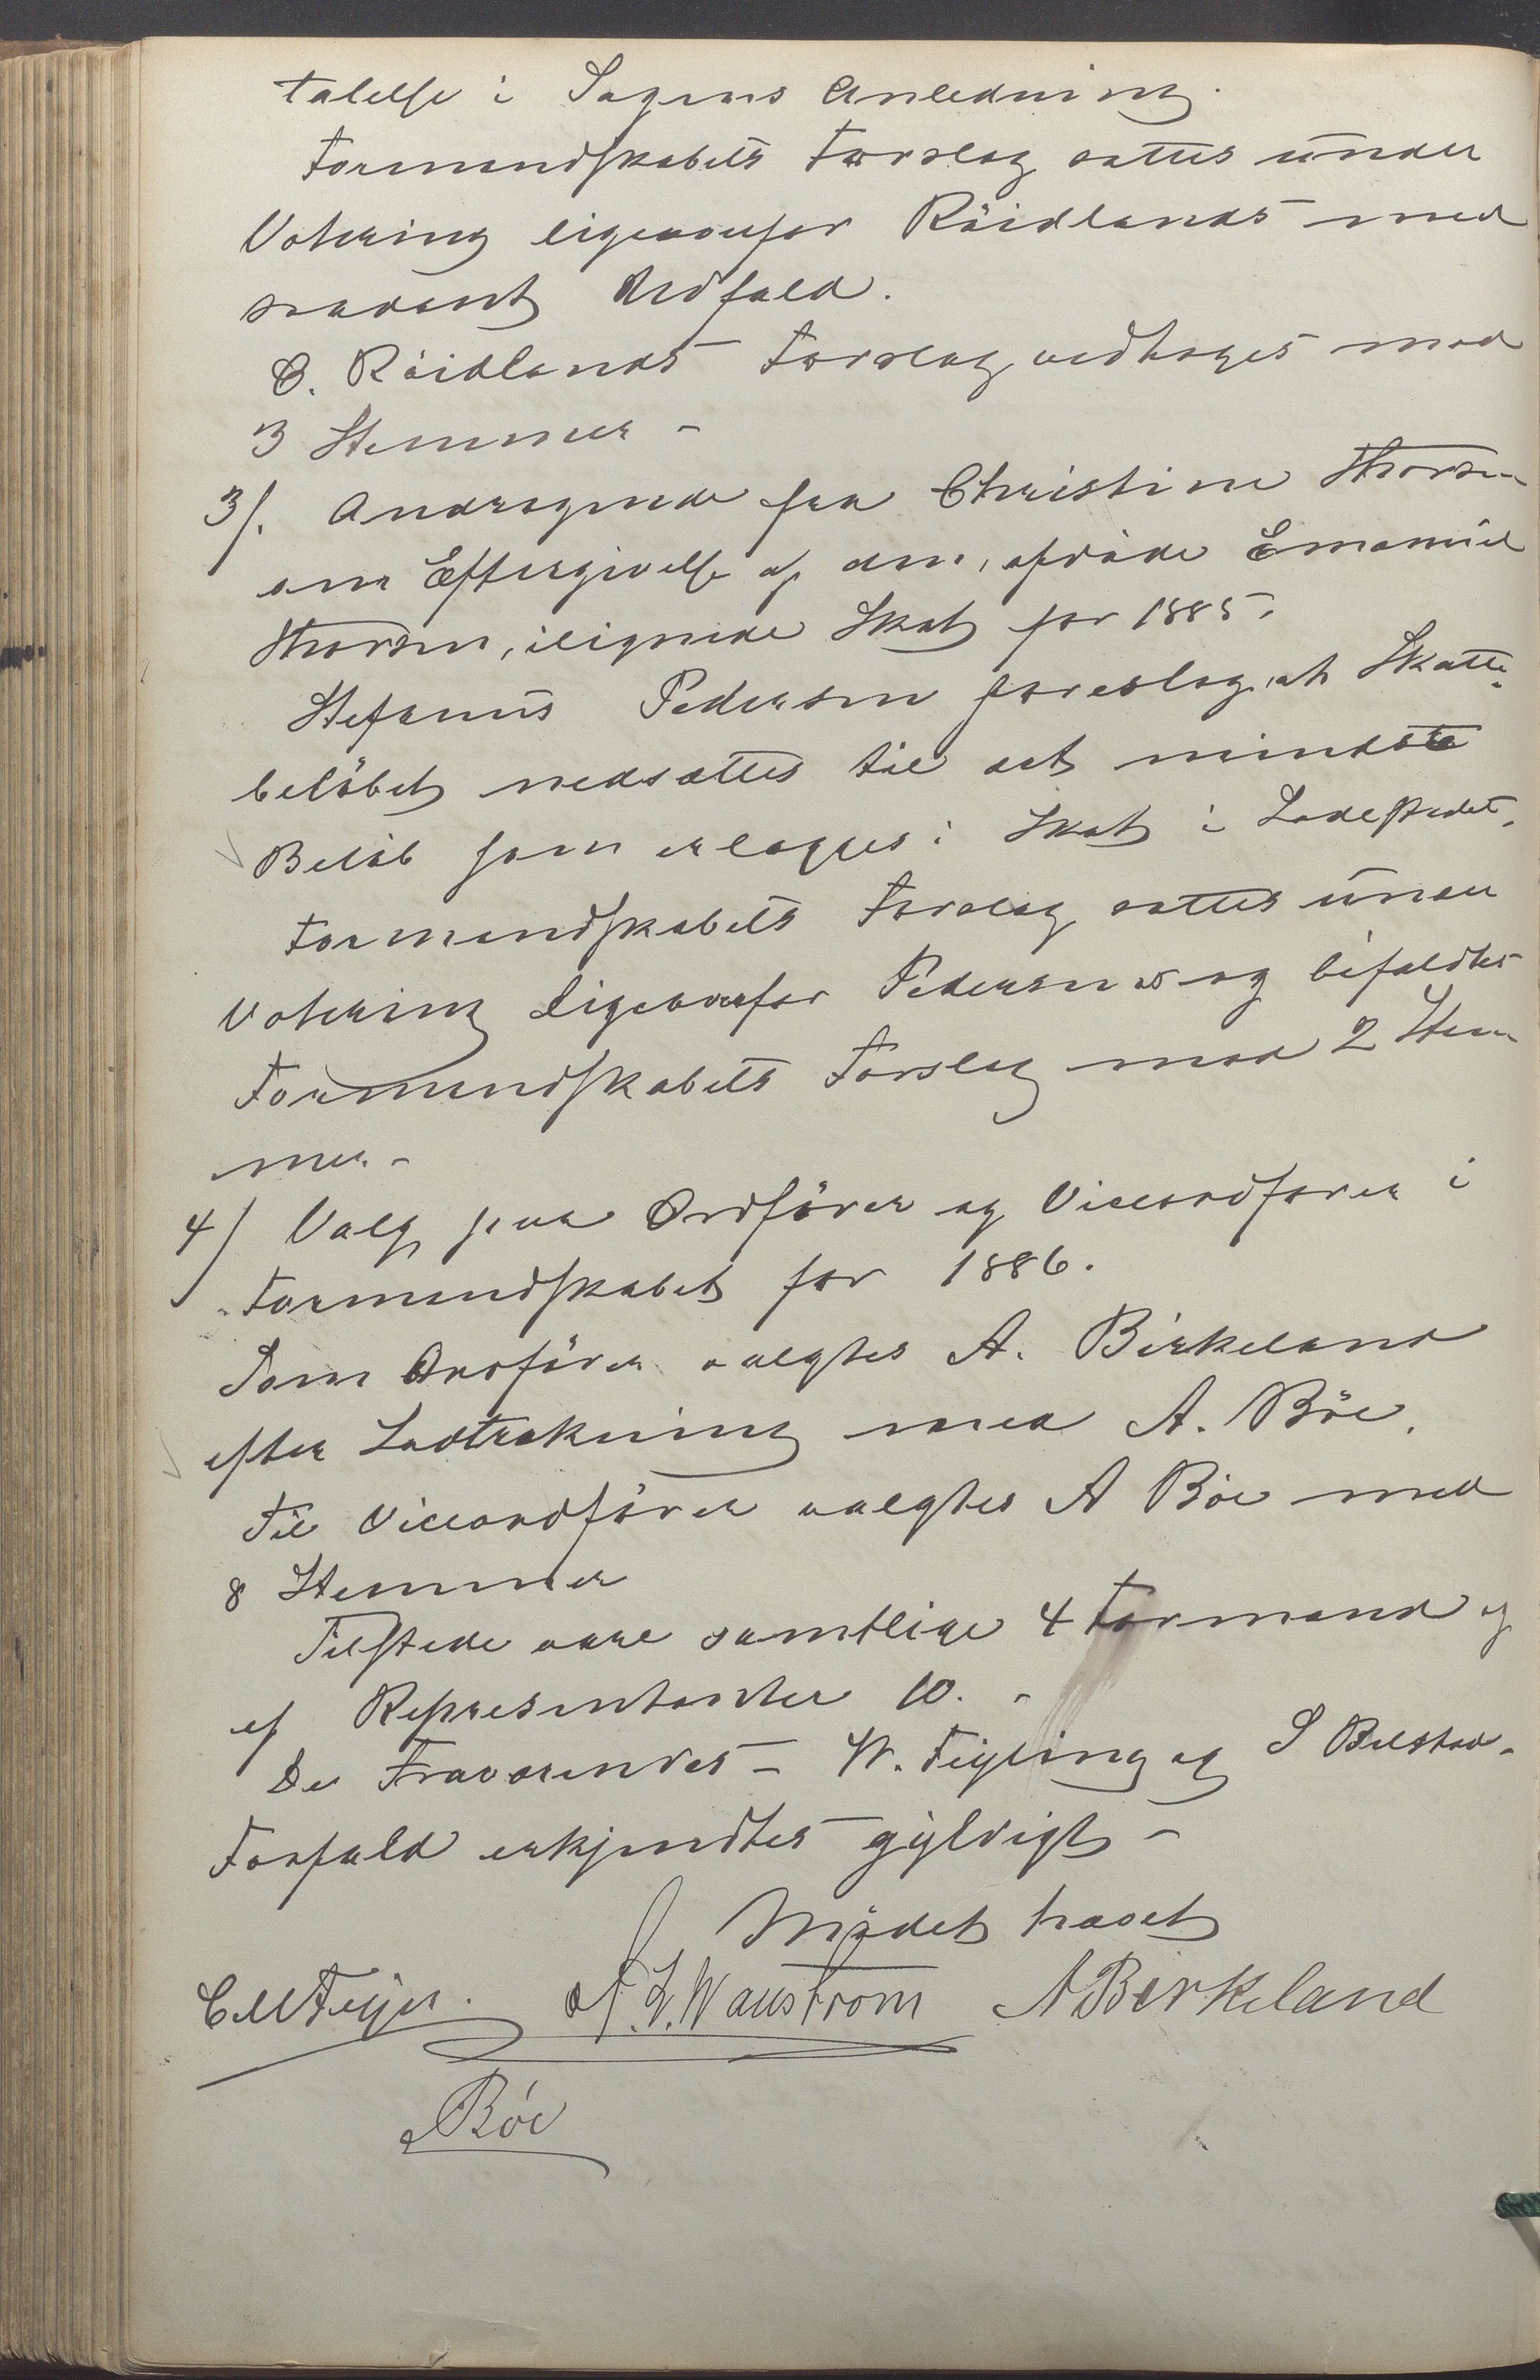 talelse i Sagens Anledning.
Formandskabets Forslag sattes under
Votering ligeoverfor Röidlands med
saadant Udfald.
C. Röidlands Forslag vedtoges mod
3 Stemmer -
3/. Andragende fra Christine Thorsen
om Eftergivelse af den, afdöde Emanuel
Thorsen, ilignede Skat for 1885.
Stefanus Pedersen foreslog, at Skatte-
belöbet nedsattes til det mindste
Belöb som erlægges i Skat i Ladestedet.
Formandskabets Forslag sattes under
Votering ligeoverfor Pedersens og bifaldtes
Formandskabets Forslag mod 2 Stem-
mer. -
4/ Valg paa Ordförer og Viceordförer i
Formandskabet for 1886.
Som Ordförer valgtes A. Birkeland
efter Lodtrækning med A. Böe.
Til Viceordförer valgtes A Böe med
8 Stemmer
Tilstede vare samtlige 4 Formænd og
af Repræsentanter 10. -
De Fraværendes - W. Feyling og S Bilstad -
Forfald erkjendtes gyldigt -
Mödet hævet
A. L. Wanstrom A Birkeland
Böe